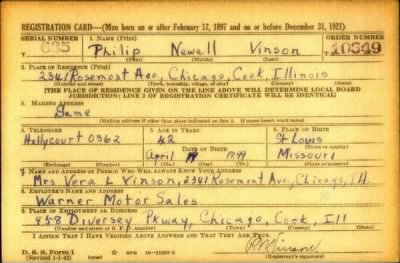 REGISTRATION CARD—(Men born on or after February 17, 1897 and on or before December 31, 1921)
SERIAL NUMBER 1. NAME (Print) ORDER NUMBER
Philip Newell Vinson 10549
(First) (Middle) (Last)
2. PLACE OF RESIDENCE (Print)
2341 Rosemont Ave, Chicago, Cook, Illinois
(Number and street) (Town, township, village, or city) (County) (State)
[THE PLACE OF RESIDENCE GIVEN ON THE LINE ABOVE WILL DETERMINE LOCAL BOARD
JURISDICTION; LINE 2 OF REGISTRATION CERTIFICATE WILL BE IDENTICAL]
3. MAILING ADDRESS
Same
[Mailing address if other than place indicated on line 2. If same insert word same]
4. TELEPHONE 5. AGE IN YEARS 6. PLACE OF BIRTH
Hollycourt 0362 42 St Louis
DATE OF BIRTH (Town or county)
April 1899 Missouri
(Exchange) (Number) (Mo.) (Day) (Yr.) (State or country)
7. NAME AND ADDRESS OF PERSON WHO WILL ALWAYS KNOW YOUR ADDRESS
Mrs Vera L Vinson, 2341 Rosemont Ave, Chicago, Ill
8. EMPLOYER'S NAME AND ADDRESS
Warner Motor Sales
9. PLACE OF EMPLOYMENT OR BUSINESS
958 Diversey Pkway, Chicago, Cook, Ill
(Number and street or R. F. D. number) (Town) (County) (State)
I AFFIRM THAT I HAVE VERIFIED ABOVE ANSWERS AND THAT THEY ARE TRUE.
D. S. S. Form 1
(Revised 1-1-42) (over)